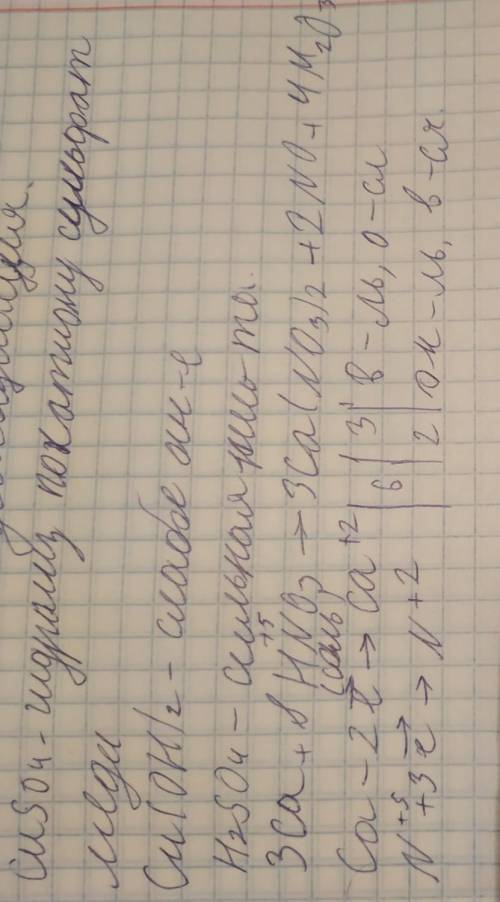 CuSO4 - гидролиз по катиону сульфат
меди
Cu(OH)2 - слабое
H2SO4 - сильная
3Ca + 8 HNO3 → 3Ca(NO3)2 + 2NO + 4H2O
+5 (соль)
Ca - 2e → Ca+2 | 6 | 3 | в-ль, о-сл
N+5 +3e → N+2 | 2 | ок-ль, в-ся.